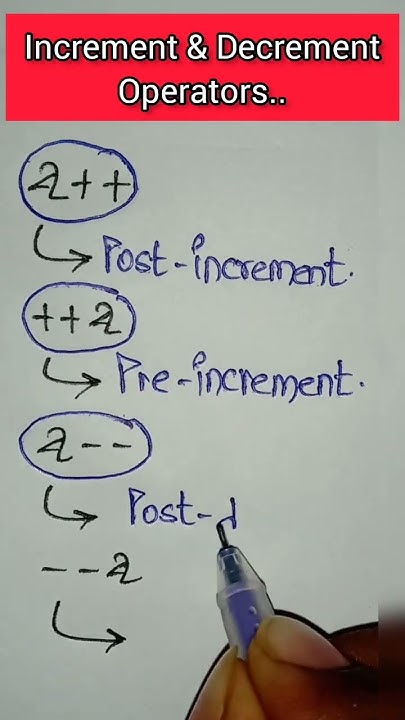 Increment & Decrement
Operators..
a++
Post-increment.
++a
Pre-increment.
a--
Post-d
--a